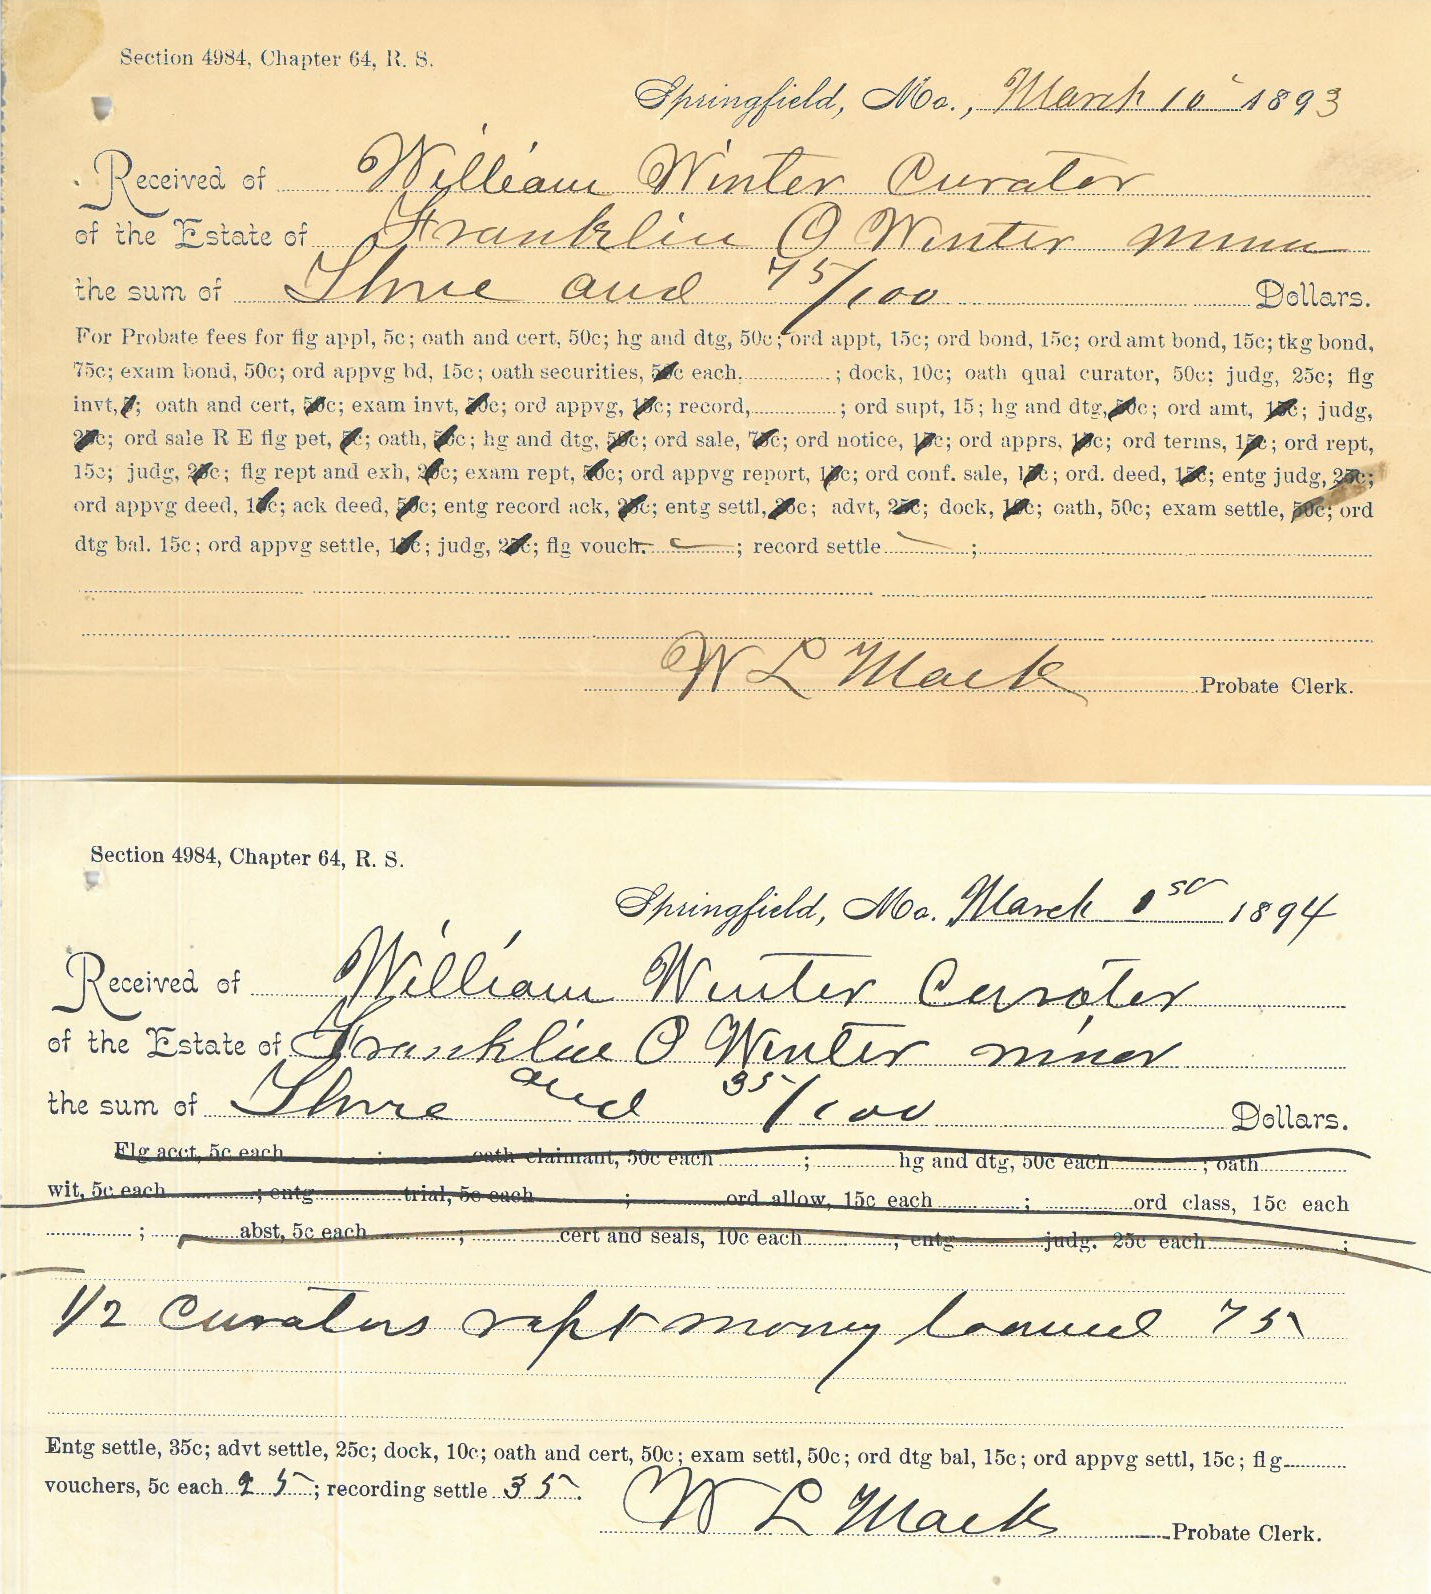 Section 4984, Chapter 64, R. S.
Springfield, Mo., March 10 1893
Received of William Winter Curator
of the Estate of Franklin O Winter minor
the sum of Three and 75/100 Dollars.
For Probate fees for flg appl, 5c; oath and cert, 50c; hg and dtg, 50c; ord appt, 15c; ord bond, 15c; ord amt bond, 15c; tkg bond,
75c; exam bond, 50c; ord appvg bd, 15c; oath securities, 50c each, ; dock, 10c; oath qual curator, 50c; judg, 25c; flg
invt, ; oath and cert, 50c; exam invt, 50c; ord appvg, 15c; record, ; ord supt, 15; hg and dtg, 50c; ord amt, 15c; judg,
25c; ord sale R E flg pet, 5c; oath, 50c; hg and dtg, 50c; ord sale, 75c; ord notice, 15c; ord apprs, 15c; ord terms, 15c; ord rept,
15c; judg, 25c; flg rept and exh, 20c; exam rept, 50c; ord appvg report, 15c; ord conf. sale, 15c; ord. deed, 15c; entg judg, 25c;
ord appvg deed, 15c; ack deed, 50c; entg record ack, 25c; entg settl, 35c; advt, 25c; dock, 10c; oath, 50c; exam settle, 50c; ord
dtg bal. 15c; ord appvg settle, 15c; judg, 25c; flg vouch. ; record settle ;
W L Mack Probate Clerk.
Section 4984, Chapter 64, R. S.
Springfield, Mo. March 1st 1894
Received of William Winter Curator
of the Estate of Franklin O Winter minor
the sum of Three and 35/100 Dollars.
Flg acct, 5c each ; oath claimant, 50c each ; hg and dtg, 50c each ; oath
wit, 5c each ; entg trial, 5c each ; ord allow, 15c each ; ord class, 15c each
; abst, 5c each ; cert and seals, 10c each ; entg judg. 25c each ;
1/2 Curators rept money loaned 75
Entg settle, 35c; advt settle, 25c; dock, 10c; oath and cert, 50c; exam settl, 50c; ord dtg bal, 15c; ord appvg settl, 15c; flg
vouchers, 5c each 25; recording settle 35.
W L Mack Probate Clerk.